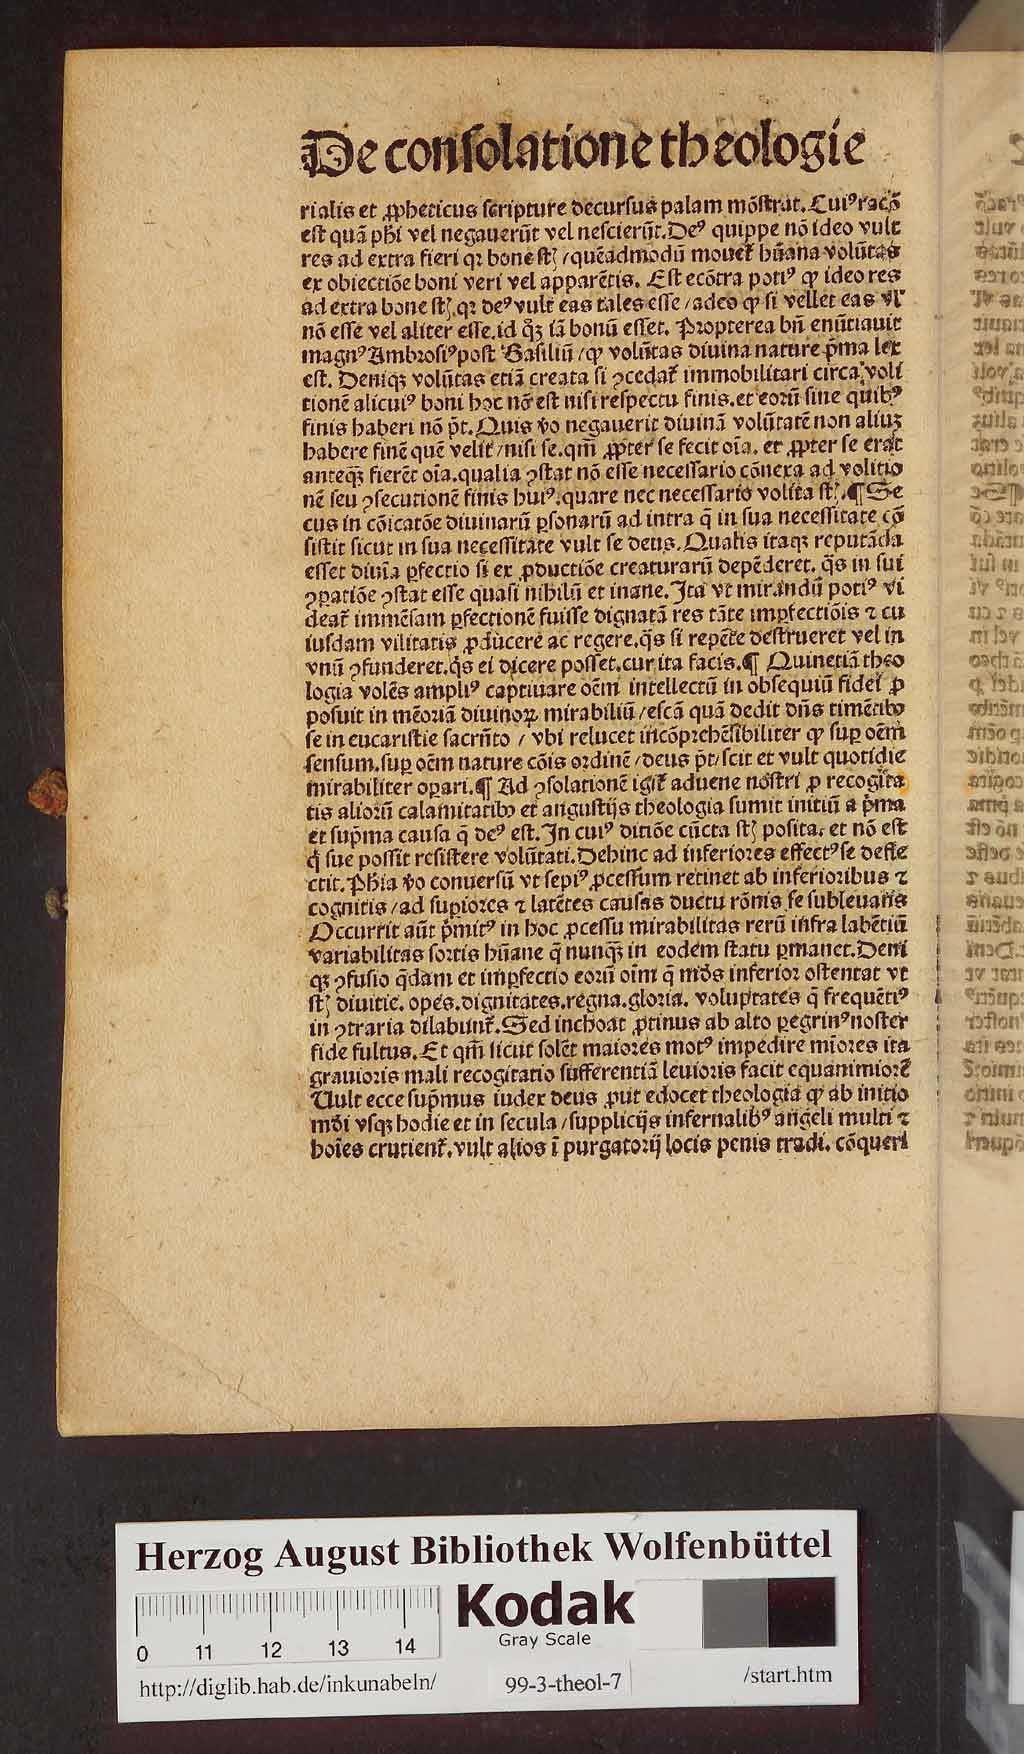 De consolatione theologie
rialis et ꝓpheticus scripture decursus palam mōstrat. Cuiꝰ racō
est quā phi vel negauerūt vel nescierūt. Deꝰ quippe nō ideo vult
res ad extra fieri qꝛ bone stꝫ / quēadmodū mouet᷑ hūana volūtas
ex obiectiōe boni veri vel apparētis. Est ecōtra potiꝰ ꝙ ideo res
ad extra bone stꝫ. qꝛ deꝰ vult eas tales esse / adeo ꝙ si vellet eas vl'
nō esse vel aliter esse. id qͦꝫ iā bonū esset. Propterea bn̄ enūtiauit
magnꝰ Ambrosiꝰ post Basiliū / ꝙ volūtas diuina nature p̄ma lex
est. Deniqꝫ volūtas etiā creata si ꝯcedat᷑ immobilitari circa voli
tionē alicuiꝰ boni hoc nō est nisi respectu finis. et eorū sine quibꝰ
finis haberi nō pōt. Quis v̄o negauerit diuinā volūtatē non aliuꝫ
habere finē quē velit / nisi se. qm̄ ꝓpter se fecit oīa. et ꝓpter se erāt
anteqꝫ̄ fierēt oīa. qualia ꝯstat nō esse necessario cōnexa ad volitio
nē seu ꝯsecutionē finis huiꝰ. quare nec necessario volita stꝫ. ¶ Se
cus in cōicatōe diuinarū ꝑsonarū ad intra q̄ in sua necessitate cō
sistit sicut in sua necessitate vult se deus. Qualis itaqꝫ reputāda
esset diuīa ꝑfectio si ex ꝓductiōe creaturarū depēderet. q̄s in sui
ꝯꝑatiōe ꝯstat esse quasi nihilū et inane. Ita vt mirandū potiꝰ vi
deat᷑ immēsam ꝑfectionē fuisse dignatā res tāte imꝑfectiōis ⁊ cu
iusdam vilitatis ꝓducere ac regere. q̄s si repēte destrueret vel in
vnū ꝯfunderet. q̄s ei dicere posset. cur ita facis. ¶ Quinetiā theo
logia volēs ampliꝰ captiuare oēm intellectū in obsequiū fidei ꝓ
posuit in mēoriā diuinoꝝ mirabiliū / escā quā dedit dn̄s timētibꝰ
se in eucaristie sacrn̄to / vbi relucet incōpꝛehēsibiliter ꝙ suꝑ oēm
sensum. suꝑ oēm nature cōis ordinē / deus pōt / scit et vult quotidie
mirabiliter oꝑari. ¶ Ad ꝯsolationē igit᷑ aduene nostri ꝓ recogita
tis aliorū calamitatibꝰ et angustijs theologia sumit initiū a p̄ma
et sup̄ma causa q̄ deꝰ est. In cuiꝰ ditiōe cūcta stꝫ posita. et nō est
q̄ sue possit resistere volūtati. Dehinc ad inferiores effectꝰ se defle
ctit. Phīa v̄o conuersū vt sepiꝰ ꝓcessum retinet ab inferioribus ⁊
cognitis / ad suꝑiores ⁊ latētes causas ductu rōnis se subleuans
Occurrit aūt p̄mitꝰ in hoc ꝓcessu mirabilitas rerū infra labētiū
variabilitas sortis hūane q̄ nunqꝫ̄ in eodem statu ꝑmanet. Deni
qꝫ ꝯfusio q̄dam et imꝑfectio eorū oīm q̄ mūdꝰ inferior ostentat vt
stꝫ diuitie. opes. dignitates. regna. gloria. voluptates q̄ frequētiꝰ
in ꝯtraria dilabunt᷑. Sed inchoat ꝓtinus ab alto ꝑegrinꝰ noster
fide fultus. Et qm̄ sicut solēt maiores motꝰ impedire mīores ita
grauioris mali recogitatio sufferentiā leuioris facit equanimiorē
Uult ecce sup̄mus iudex deus ꝓut edocet theologia ꝙ ab initio
mūdi vsqꝫ hodie et in secula / supplicijs infernalibꝰ angeli multi ⁊
hoīes crucient᷑. vult alios ī purgatorij locis penis tradi. cōqueri
Herzog August Bibliothek Wolfenbüttel
0 11 12 13 14
Kodak
Gray Scale
http://diglib.hab.de/inkunabeln/
99-3-theol-7
/start.htm